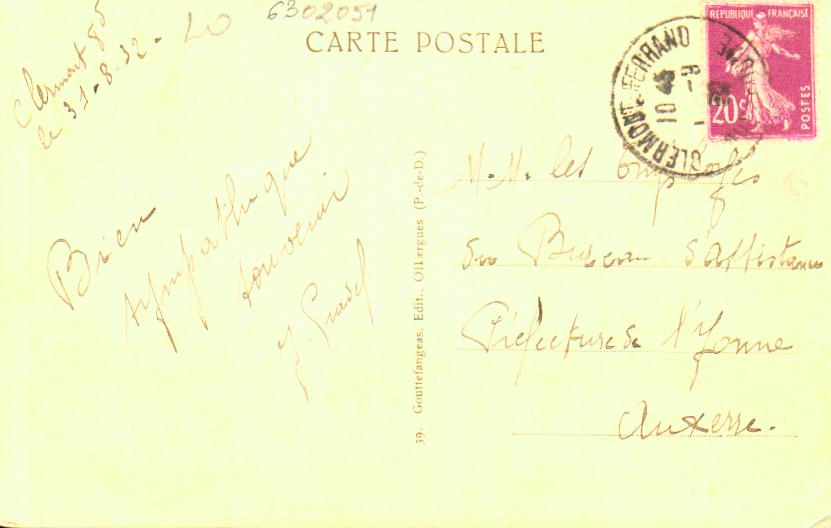 6302051
CARTE POSTALE
Clermont
le 31-8-32-
Bien
sympathique
souvenir
J. Pradel
39- Gouttefangeas, Edit., Olliergues (P.-de-D.)
RÉPUBLIQUE FRANÇAISE
20c
POSTES
CLERMONT-FERRAND
M.M. les Employés
du Bureau d'assistance
Préfecture de l'Yonne
Auxerre.